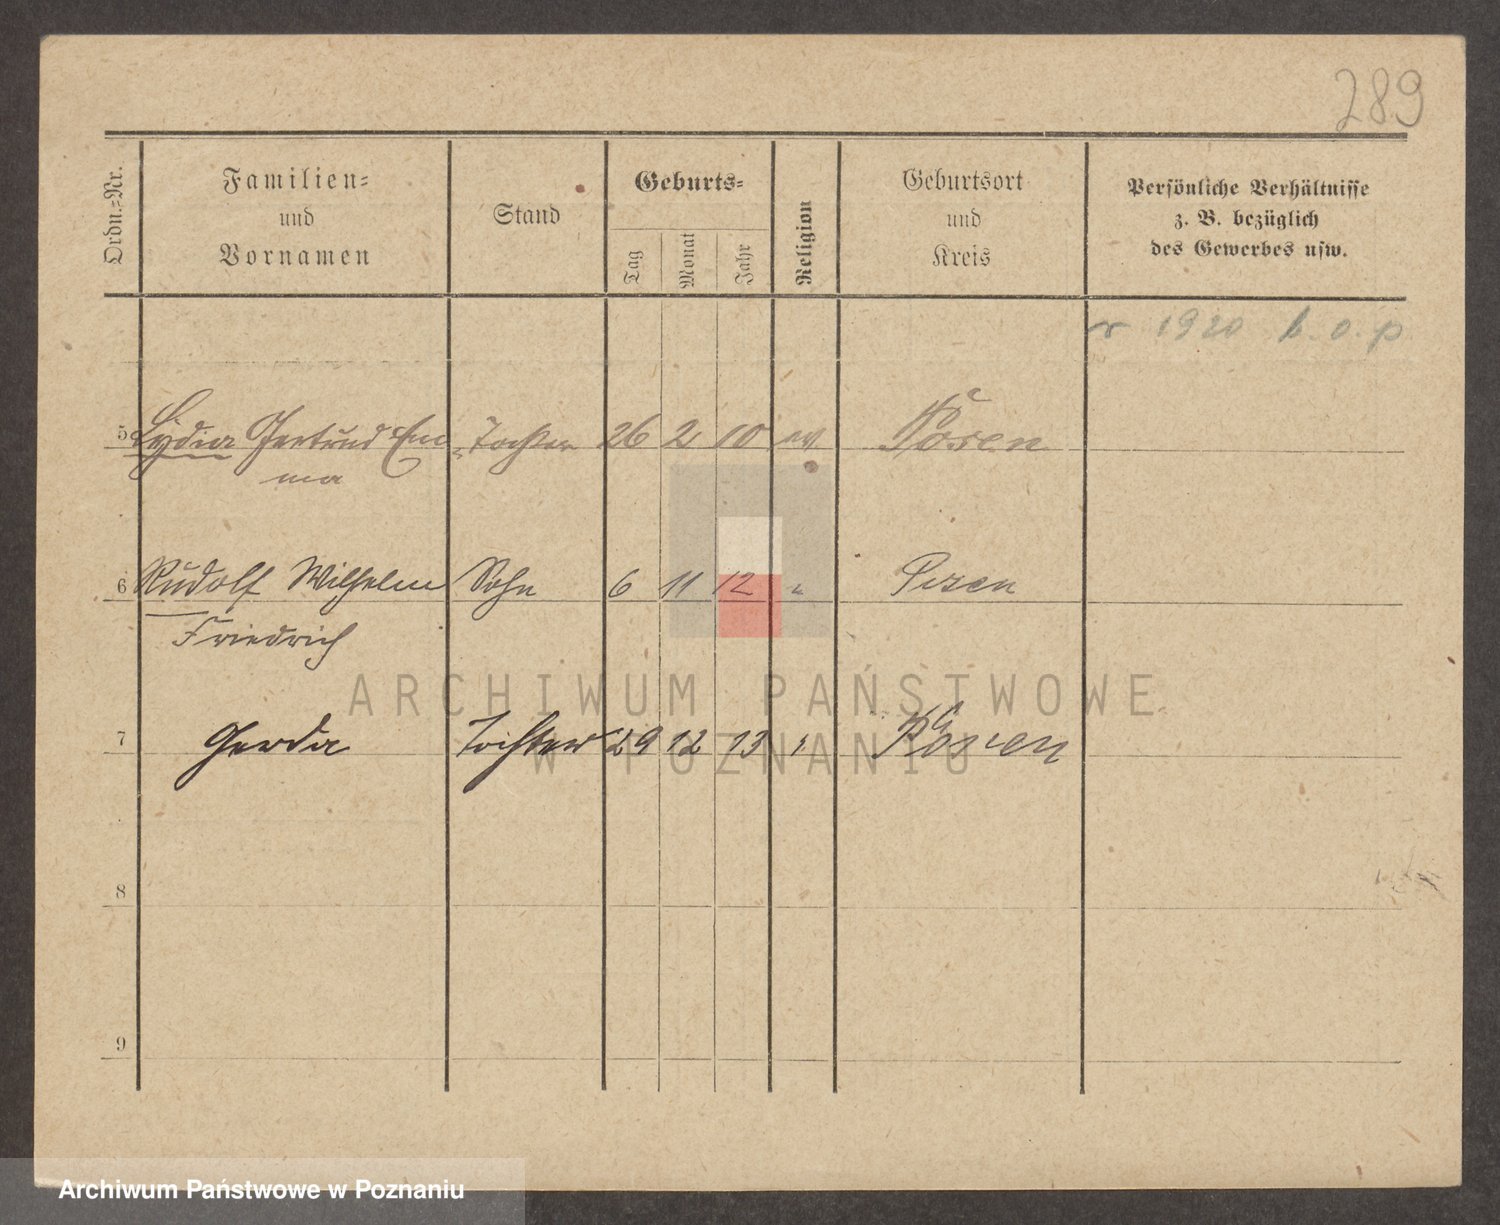 289
Ordn.-Nr.
Familien-
und
Vornamen
Stand
Geburts-
Tag
Monat
Jahr
Religion
Geburtsort
und
Kreis
Persönliche Verhältnisse
z. B. bezüglich
des Gewerbes usw.
r 1920 b. o. p
5 Lydia Gertrud Em- Tochter 26 2 10 ev Posen
ma
6 Rudolf Wilhelm Sohn 6 11 12 " Posen
Friedrich
ARCHIWUM PAŃSTWOWE
7 Gerda Tochter 29 12 13 " Posen
W POZNANIU
8
9
Archiwum Państwowe w Poznaniu